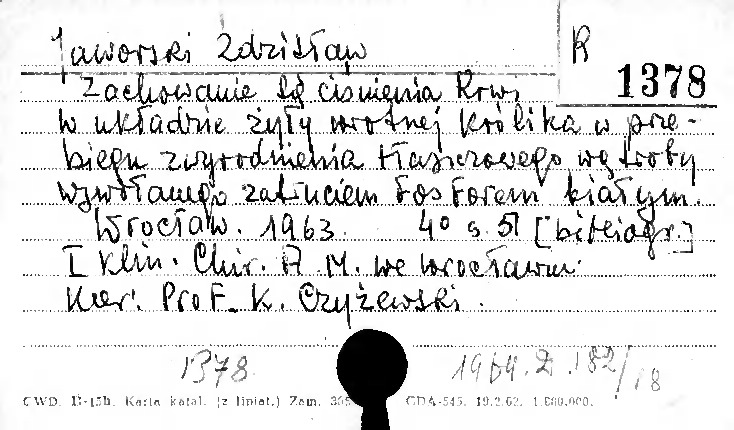 Jaworski Zdzisław
R
1378
Zachowanie się ciśnienia krwi
w układzie żyły wrotnej królika w prze-
biegu zwyrodnienia tłuszczowego wątroby
wywołanego zatruciem fosforem białym.
Wrocław. 1963. 4° s. 51 [bibliogr.]
I Klin. Chir. A. M. we Wrocławiu.
Kier. Prof. K. Czyżewski.
1378
1964. Z. 182/18
CWD. D-15b. Karta katal. (z liniat.) Zam. CDA-545. 19.2.62. 1.000.000.